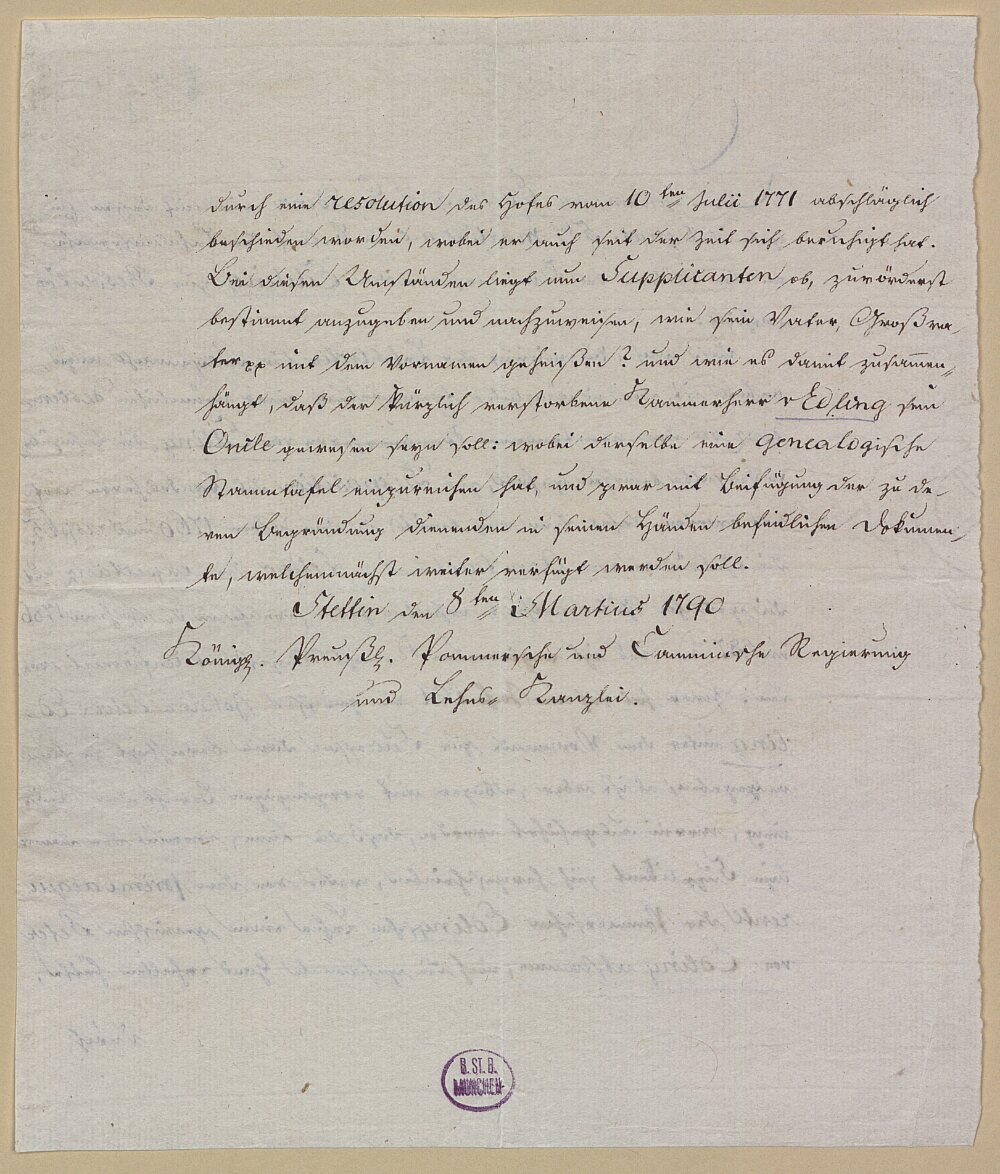 durch eine resolution des Hofes vom 10ten Julii 1771 abschläglich
beschieden worden, wobei er auch seit der Zeit sich beruhigt hat.
Bei diesen Umständen liegt nun Supplicanten ob, zuvörderst
bestimmt anzugeben und nachzuweisen, wie sein Vater, Großva-
ter pp mit dem Vornamen geheißen? und wie es damit zusammen-
hängt, daß der kürzlich verstorbene Kammerherr v Edling sein
Onkle gewesen seyn soll: wobei derselbe eine genealogische
Stammtafel einzureichen hat, und zwar mit Beifügung der zu de-
ren Begründung dienenden in seinen Händen befindlichen Dokumen-
te, welchemnächst weiter verfügt werden soll.
Stettin den 8ten Martius 1790
Königl. Preußl. Pommersche und Camminsche Regierung
und Lehns-Kanzlei.
B. ST. B.
MÜNCHEN